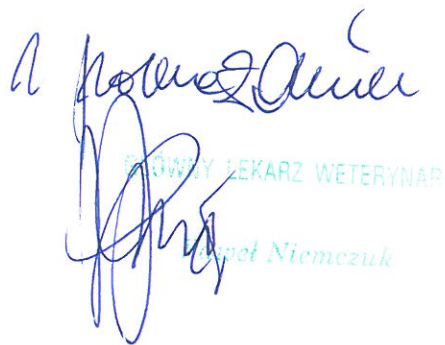 z poważaniem
GŁÓWNY LEKARZ WETERYNAR
Paweł Niemczuk